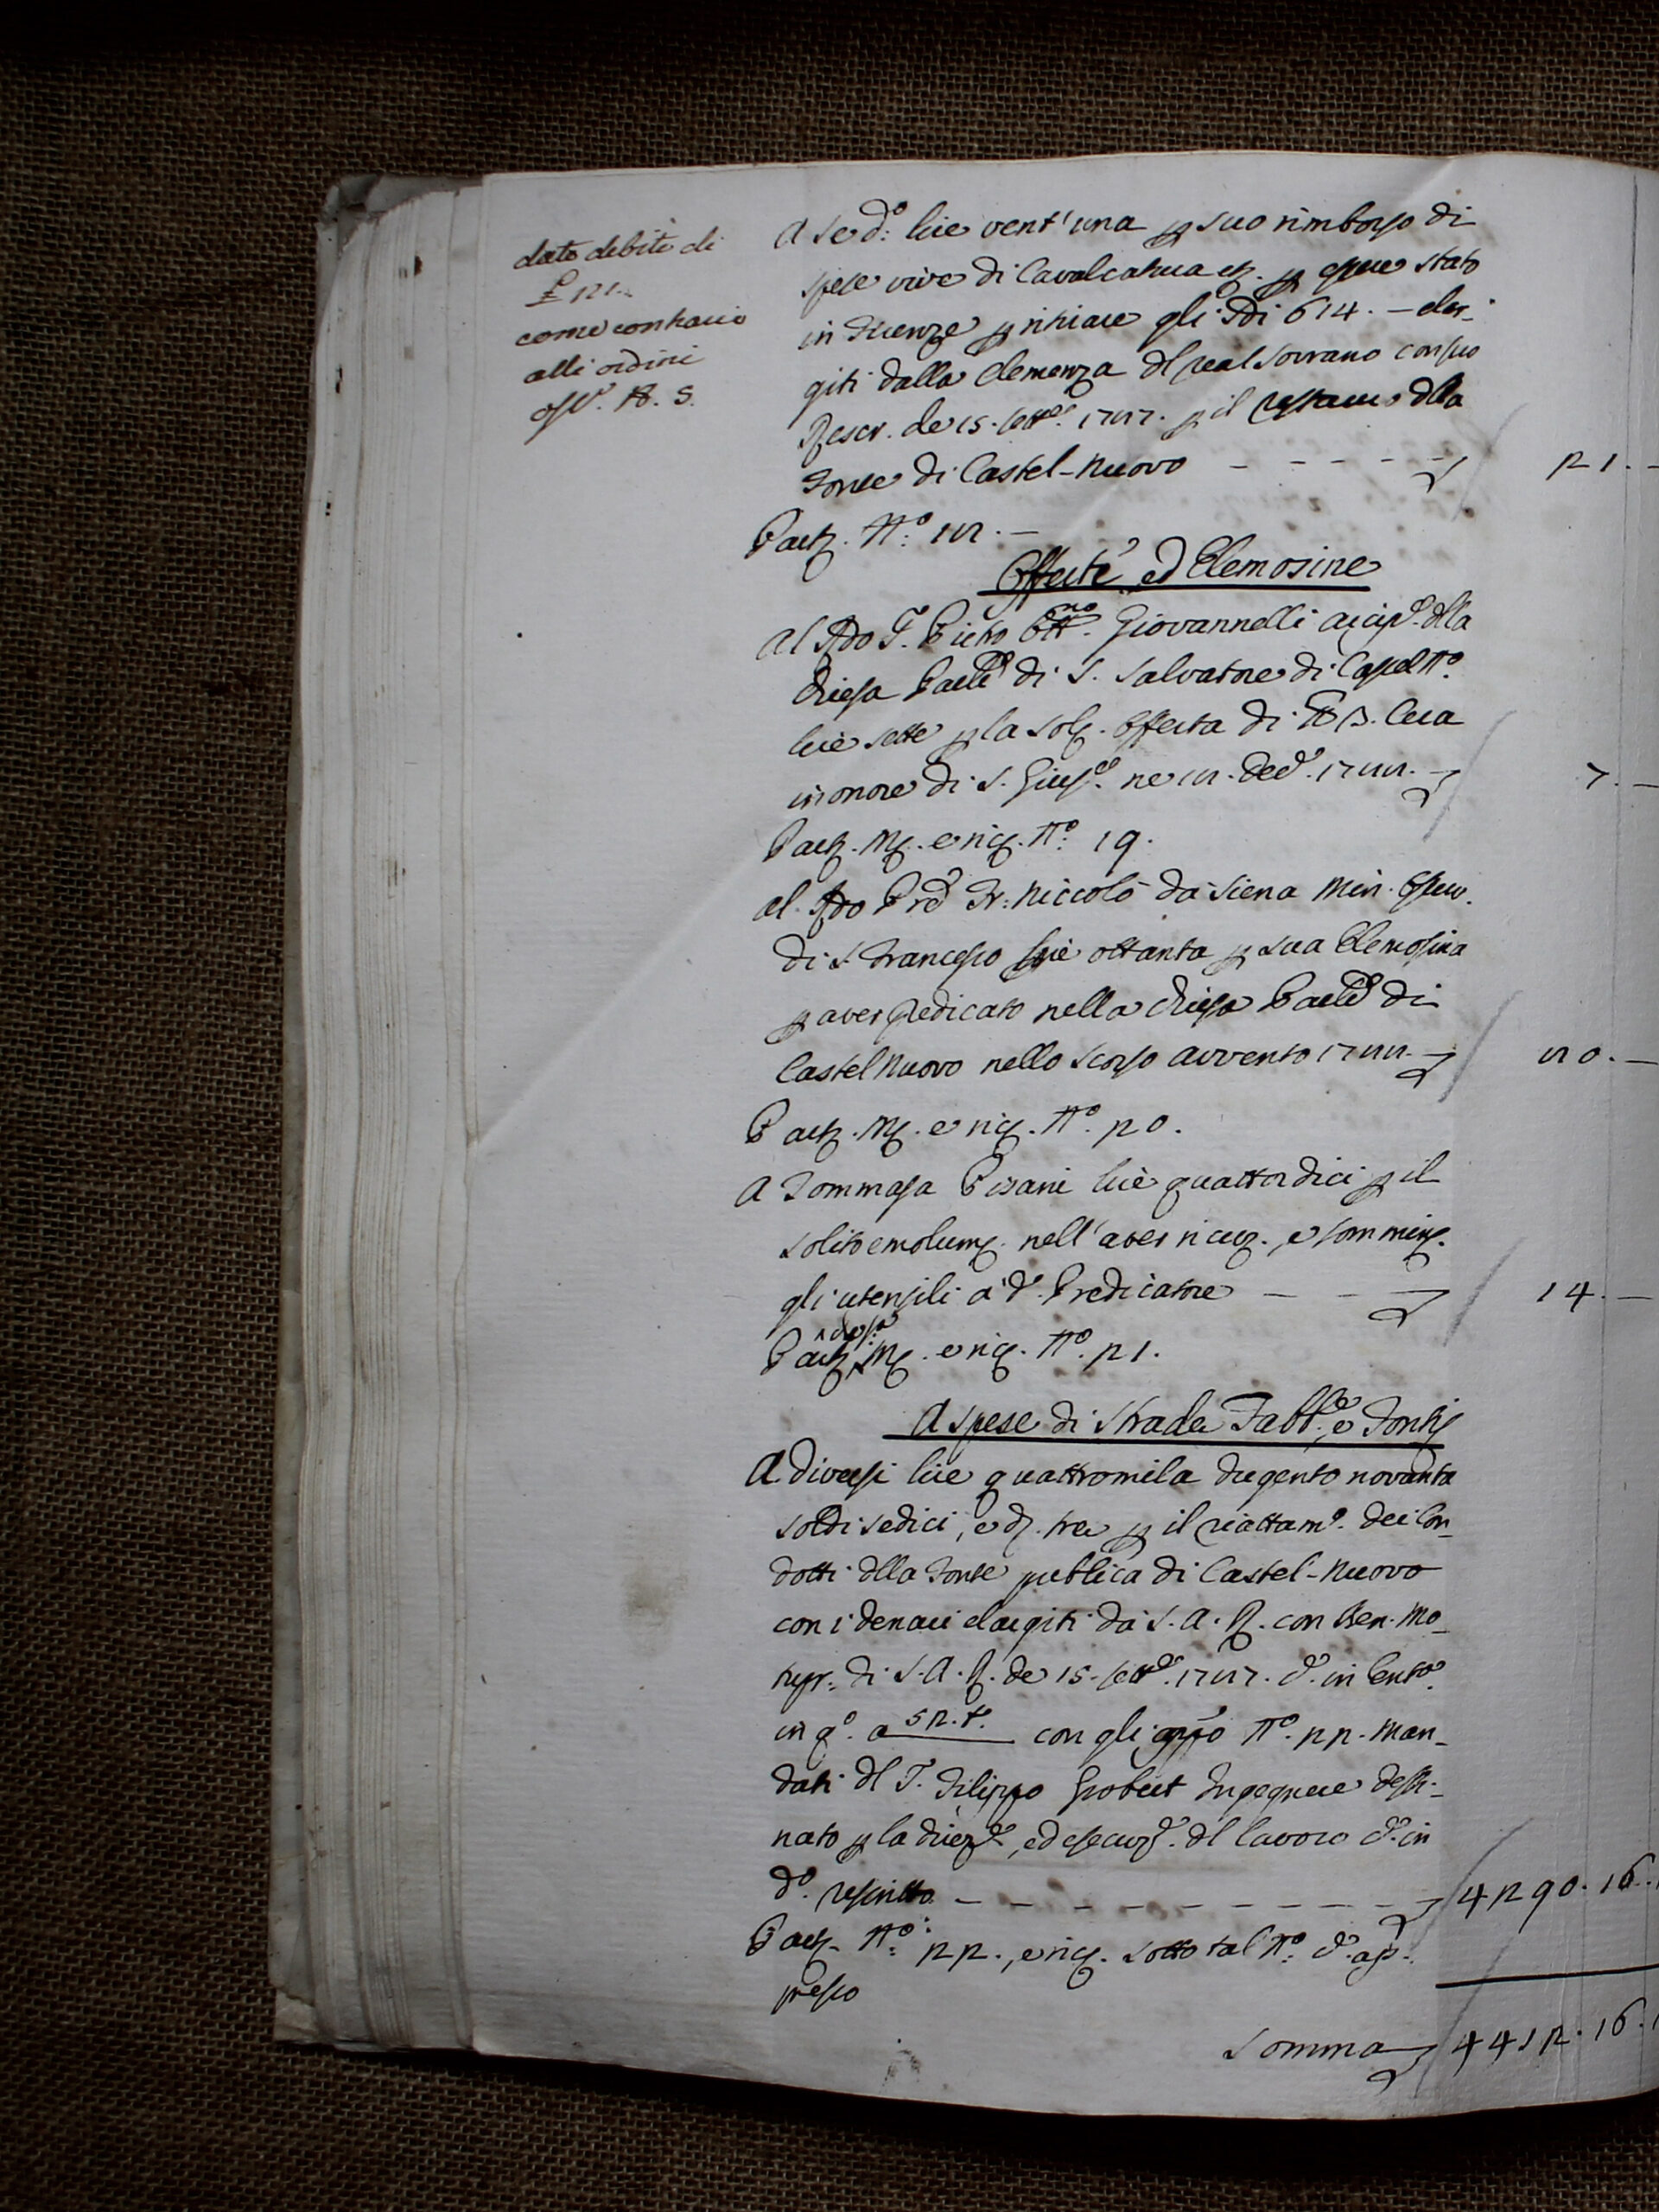 dato debito di
£ 21..
come contrario
alli ordini
oss.e N. 5.
A se d.o lire vent'una p suo rimborso di
spese vive di Cavalcatura et. p essere stato
in Firenze p ritirare gli Sdi 614. — elar-
giti dalla Clemenza dl real Sovrano con suo
Rescr. de 15. Sett.e 1787. p il restauro dlla
Fonte di Castel-Nuovo - - - - - 21. -
Parta. N.o: 18. —
Offerte, ed Elemosine
Al Rdo S. Pietro Ott.no Giovannelli Arcip.e dlla
Chiesa Parle di S. Salvatore di Castel N.o
lire sette p la sol. Offerta di lb 3. Cera
in onore di S. Gius.e ne 18. Dec.e 1788. - 7. -
Parta. M. e ric. N.o: 19.
Al. Rdo Pre Fr: Niccolò da Siena Min. Osserv.
di S. Francesco lire ottanta p sua Elemosina
p aver predicato nella Chiesa Parle di
Castel Nuovo nello scorso Avvento 1788. - 80. -
Parta. M. e ric. N.o. 20.
A Tommasa Pisani lire quattordici p il
solito emolum. nell'aver ricev., e sommin.
gli utensili a d.o Predicatore - - - 14. -
Parta. M. e ric. N.o. 21.
A spese di Strade Fabb.e, e Fonti
A diversi lire quattromila dugento novanta
soldi sedici, e d. tre p il riattam.o dei Con-
dotti dlla Fonte publica di Castel-Nuovo
con i denari elargiti da S. A. R. con Ben. Mo-
tupr: di S. A. R. de 15. Sett.e 1787. e in Ent.a
in q.o a 52. t.o con gli app.o N.o. 22. Man-
dati dl S. Filippo Grobert Ingegnere desti-
nato p la direz.e, ed esecuz.e dl lavoro e in
d.o rescritto - - - - - - - - - 4290. 16.
Parta. N.o: 22., e ric. sotto tal N.o e ap-
presso
Somma 4412. 16.